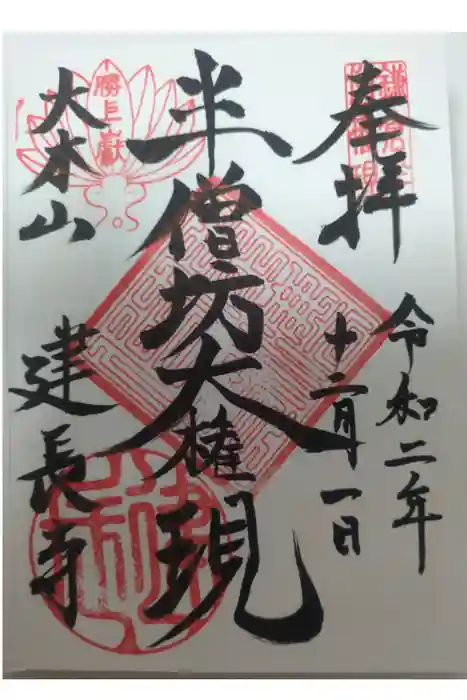 奉拝
令和二年
十二月一日
半僧坊大権現
勝上嶽
大本山
建長寺